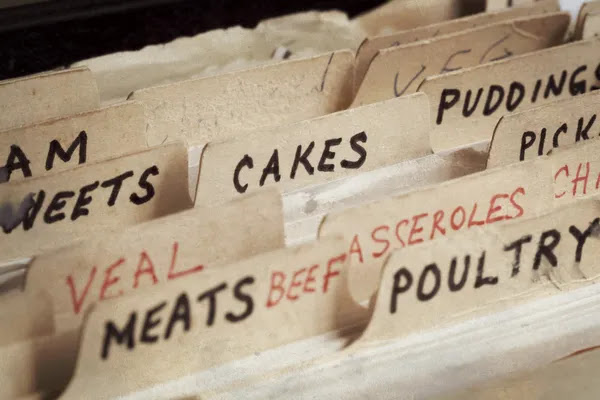 VEG
PUDDINGS
AM
CAKES
PICK
WEETS
CHI
VEAL
ASSEROLES
MEATS BEEF
POULTRY